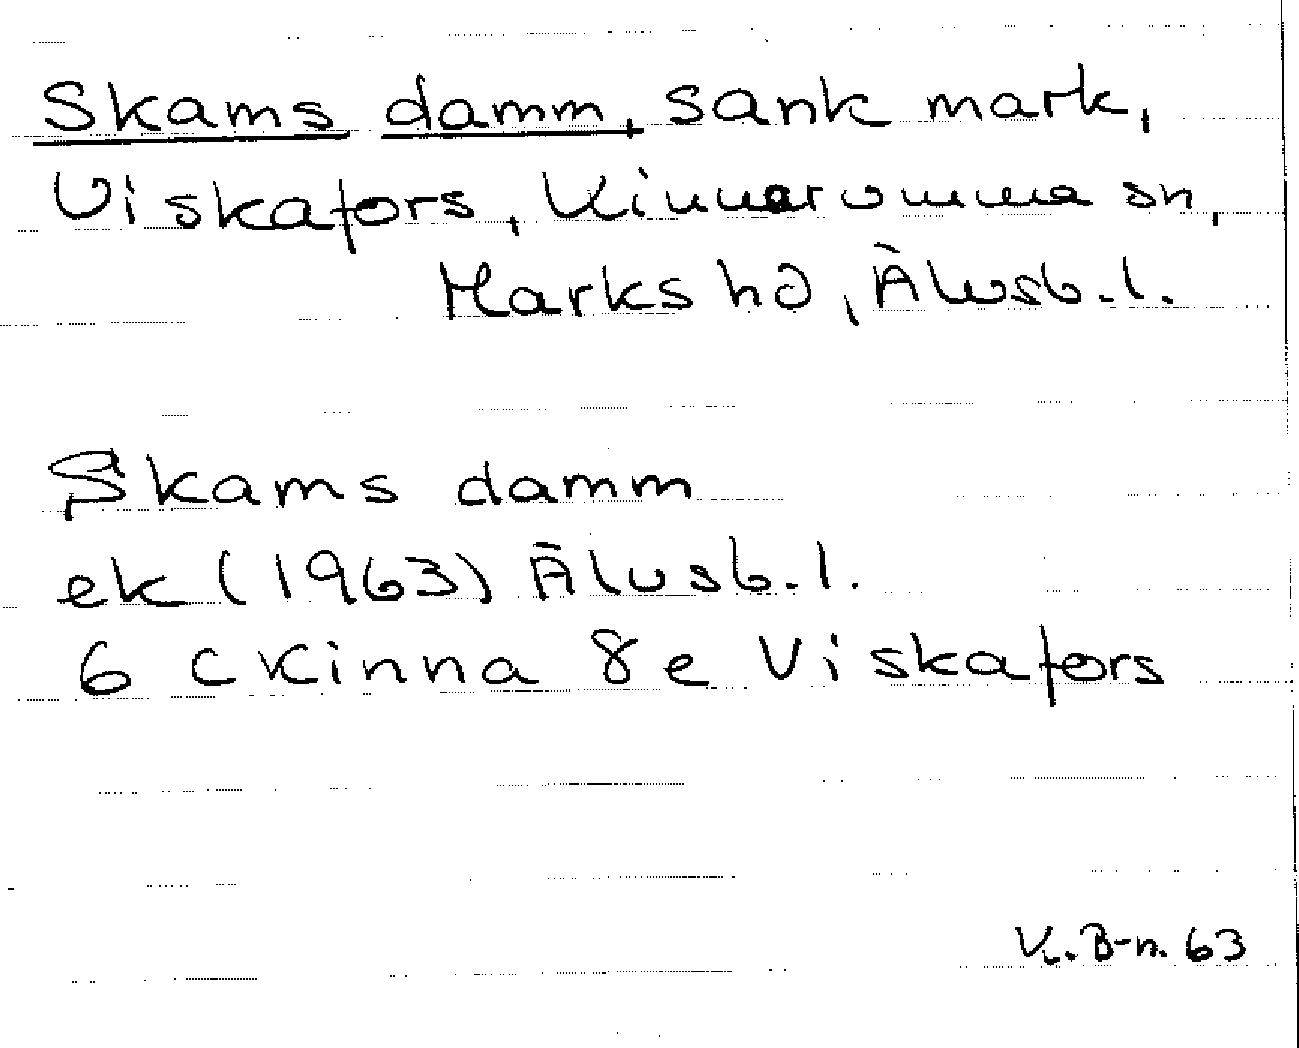 Skams damm, sank mark,
Viskafors, Kinnarumma sn,
Marks hd, Älvsb. l.
Skams damm
ek (1963) Älvsb. l.
6 C Kinna 8e Viskafors
K. B-n. 63